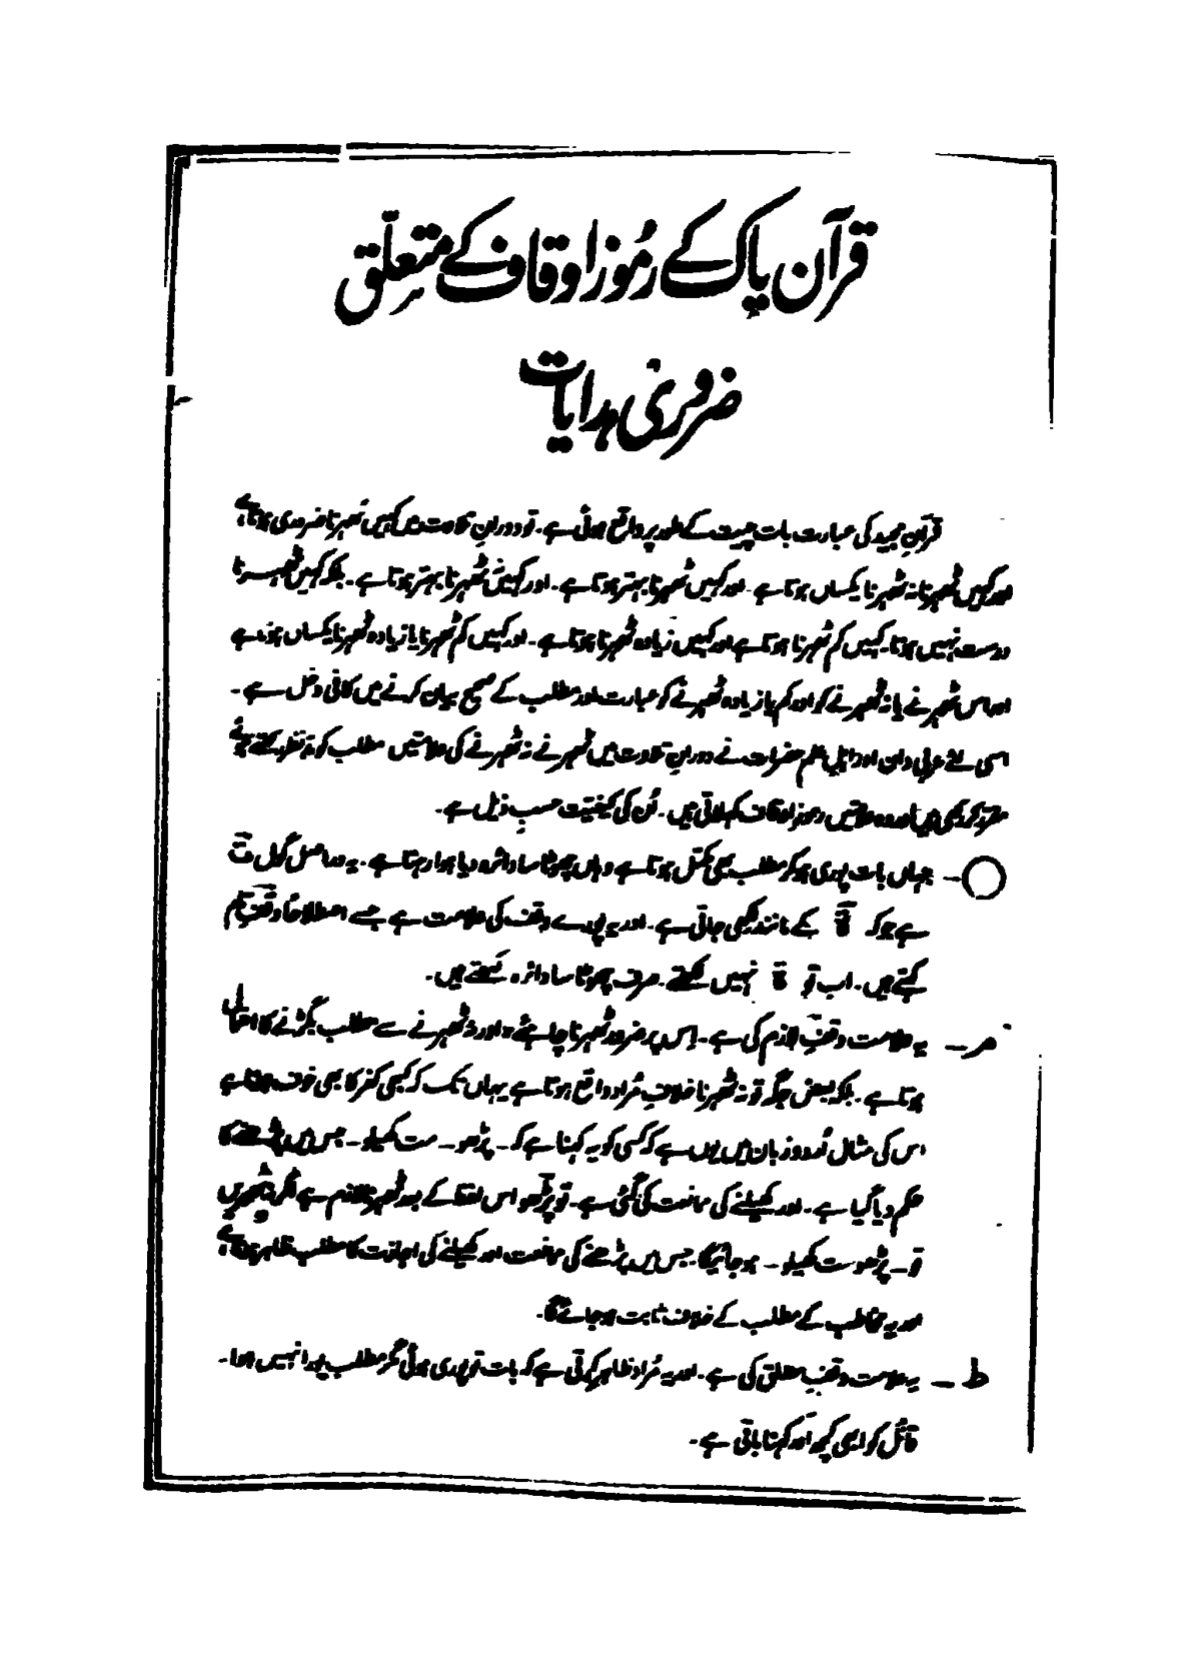 قرآن پاک کے رُموز اوقاف کے متعلّق
ضروری ہدایات
قرآنِ مجید کی عبارت بات چیت کے طور پر واقع ہوئی ہے۔ تو دورانِ تلاوت میں کہیں ٹھہرنا ضروری ہوتا ہے
اور کہیں ٹھہرنا نہ ٹھہرنا یکساں ہوتا ہے۔ اور کہیں ٹھہرنا بہتر ہوتا ہے۔ اور کہیں نہ ٹھہرنا بہتر ہوتا ہے۔ بلکہ کہیں ٹھہرنا
درست نہیں ہوتا۔ کہیں کم ٹھہرنا ہوتا ہے اور کہیں زیادہ ٹھہرنا ہوتا ہے۔ اور کہیں کم ٹھہرنا یا زیادہ ٹھہرنا یکساں ہوتا ہے
اور اس ٹھہرنے یا نہ ٹھہرنے کو اور کم یا زیادہ ٹھہرنے کو عبارت اور مطلب کے صحیح بیان کرنے میں کافی دخل ہے۔
اسی لئے عربی دان اور اہلِ علم حضرات نے دورانِ تلاوت میں ٹھہرنے نہ ٹھہرنے کی علامتیں مطلب کو مدِّنظر رکھتے ہوئے
مقرر کر دی ہیں اور وہ علامتیں رموز اوقاف کہلاتی ہیں۔ اُن کی کیفیّت حسبِ ذیل ہے۔
◯ — جہاں بات پوری ہو کر مطلب بھی مکمّل ہوتا ہے وہاں چھوٹا سا دائرہ دیا ہوا رہتا ہے۔ یہ دراصل گول ت
ہے جو کہ ۃ کے مانند لکھی جاتی ہے۔ اور یہ پورے وقف کی علامت ہے جسے اصطلاحاً وقفِ تام
کہتے ہیں۔ اب تو ۃ نہیں لکھتے۔ صرف چھوٹا سا دائرہ لکھتے ہیں۔
مـ — یہ علامت وقفِ لازم کی ہے۔ اِس پر ضرور ٹھہرنا چاہئے اور نہ ٹھہرنے سے مطلب بگڑنے کا احتمال
ہوتا ہے۔ بلکہ بعض جگہ تو نہ ٹھہرنا خلافِ مُراد واقع ہوتا ہے یہاں تک کہ کبھی کفر کا بھی خوف ہوتا ہے
اس کی مثال اُردو زبان میں یوں ہے کہ کسی کو یہ کہنا ہے کہ۔ پڑھو۔ مت کھیلو۔ جس میں پڑھنے کا
حکم دیا گیا ہے۔ اور کھیلنے کی ممانعت کی گئی ہے۔ تو پڑھو اس لفظ کے بعد ٹھہرنا لازم ہے اگر نہ ٹھہریں
تو۔ پڑھو مت کھیلو۔ ہو جائیگا۔ جس میں پڑھنے کی ممانعت اور کھیلنے کی اجازت کا مطلب ظاہر ہوتا ہے
اور یہ مخاطب کے مطلب کے خلاف ثابت ہو جائے گا۔
ط — یہ علامت وقفِ مطلق کی ہے۔ اور یہ مُراد ظاہر کرتی ہے کہ بات تو پوری ہوئی مگر مطلب پورا نہیں ہوا۔
قائل کو ابھی کچھ اور کہنا باقی ہے۔